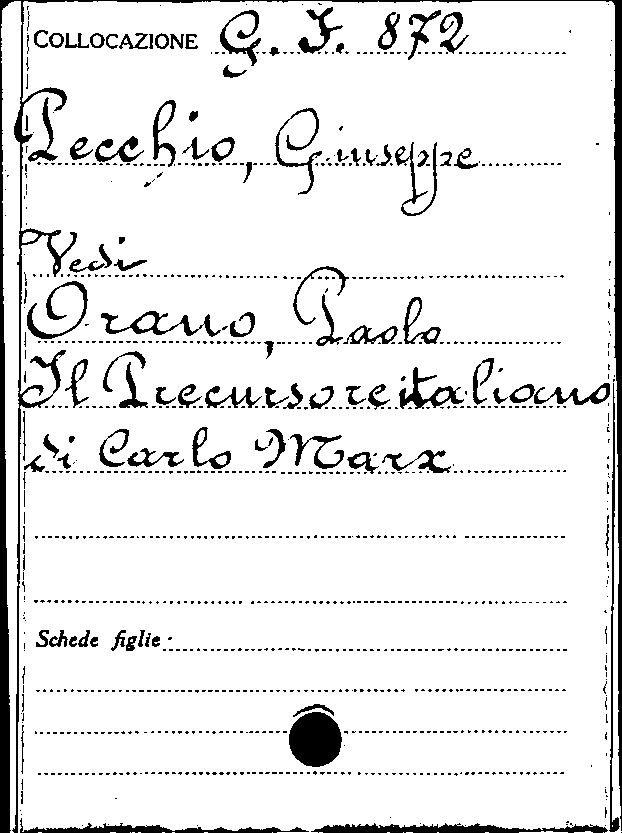 COLLOCAZIONE G. F. 872
Pecchio, Giuseppe
Vedi
Orano, Paolo
Il Precursore italiano
di Carlo Marx
Schede figlie